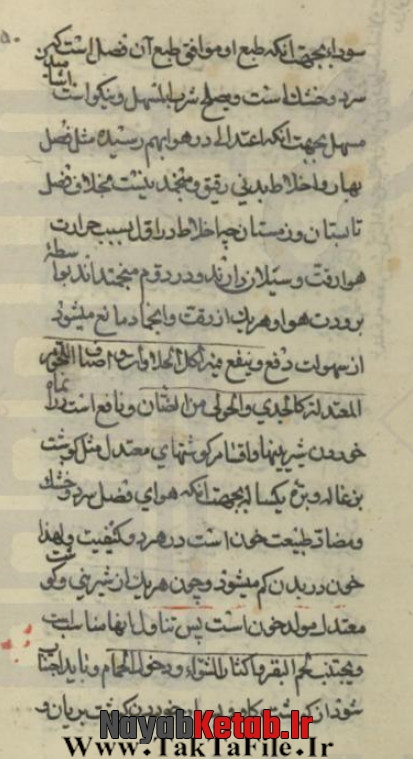 سودا بجهت انکه طبع او موافق طبع آن فصل است که
سرد و خشک است و یصلح شرب المسهل و نیکو است
مسهل بجهت انکه اعتدالی در هوا بهم رسیده مثل فصل
بهار و اخلاط بدنی رقیق و منجمد نیست بخلاف فصل
تابستان و زمستان چه اخلاط در اول بسبب حرارت
هوا رقت و سیلان دارند و در دوم منجمد اند بواسطهٔ
برودت هوا و هر یک از رقت و انجماد مانع میشود
از سهولت دفع و ینفع فیه اکل الحلاوات و اصناف اللحوم
المعتدلة کالجدی و الحولی من الضان و نافع است در
خوردن شیرینیها و اقسام کوشتهای معتدل مثل کوشت
بزغاله و بره یکساله بجهت انکه هوای فصل سرد و خشک
و مضاد طبیعت خون است در هر دو کیفیت و لهذا
خون در بدن کم میشود و چون هر یک از شیرینی و کوشت
معتدل مولد خون است پس تناول انها مناسب است
و یجتنب لحم البقر و اکثار الشواء و دخول الحمام و باید اجتناب
شود از کوشت کاو و بسیار خوردن کوشت بریان و
NayabKetab.Ir
WwW.TakTaFile.Ir